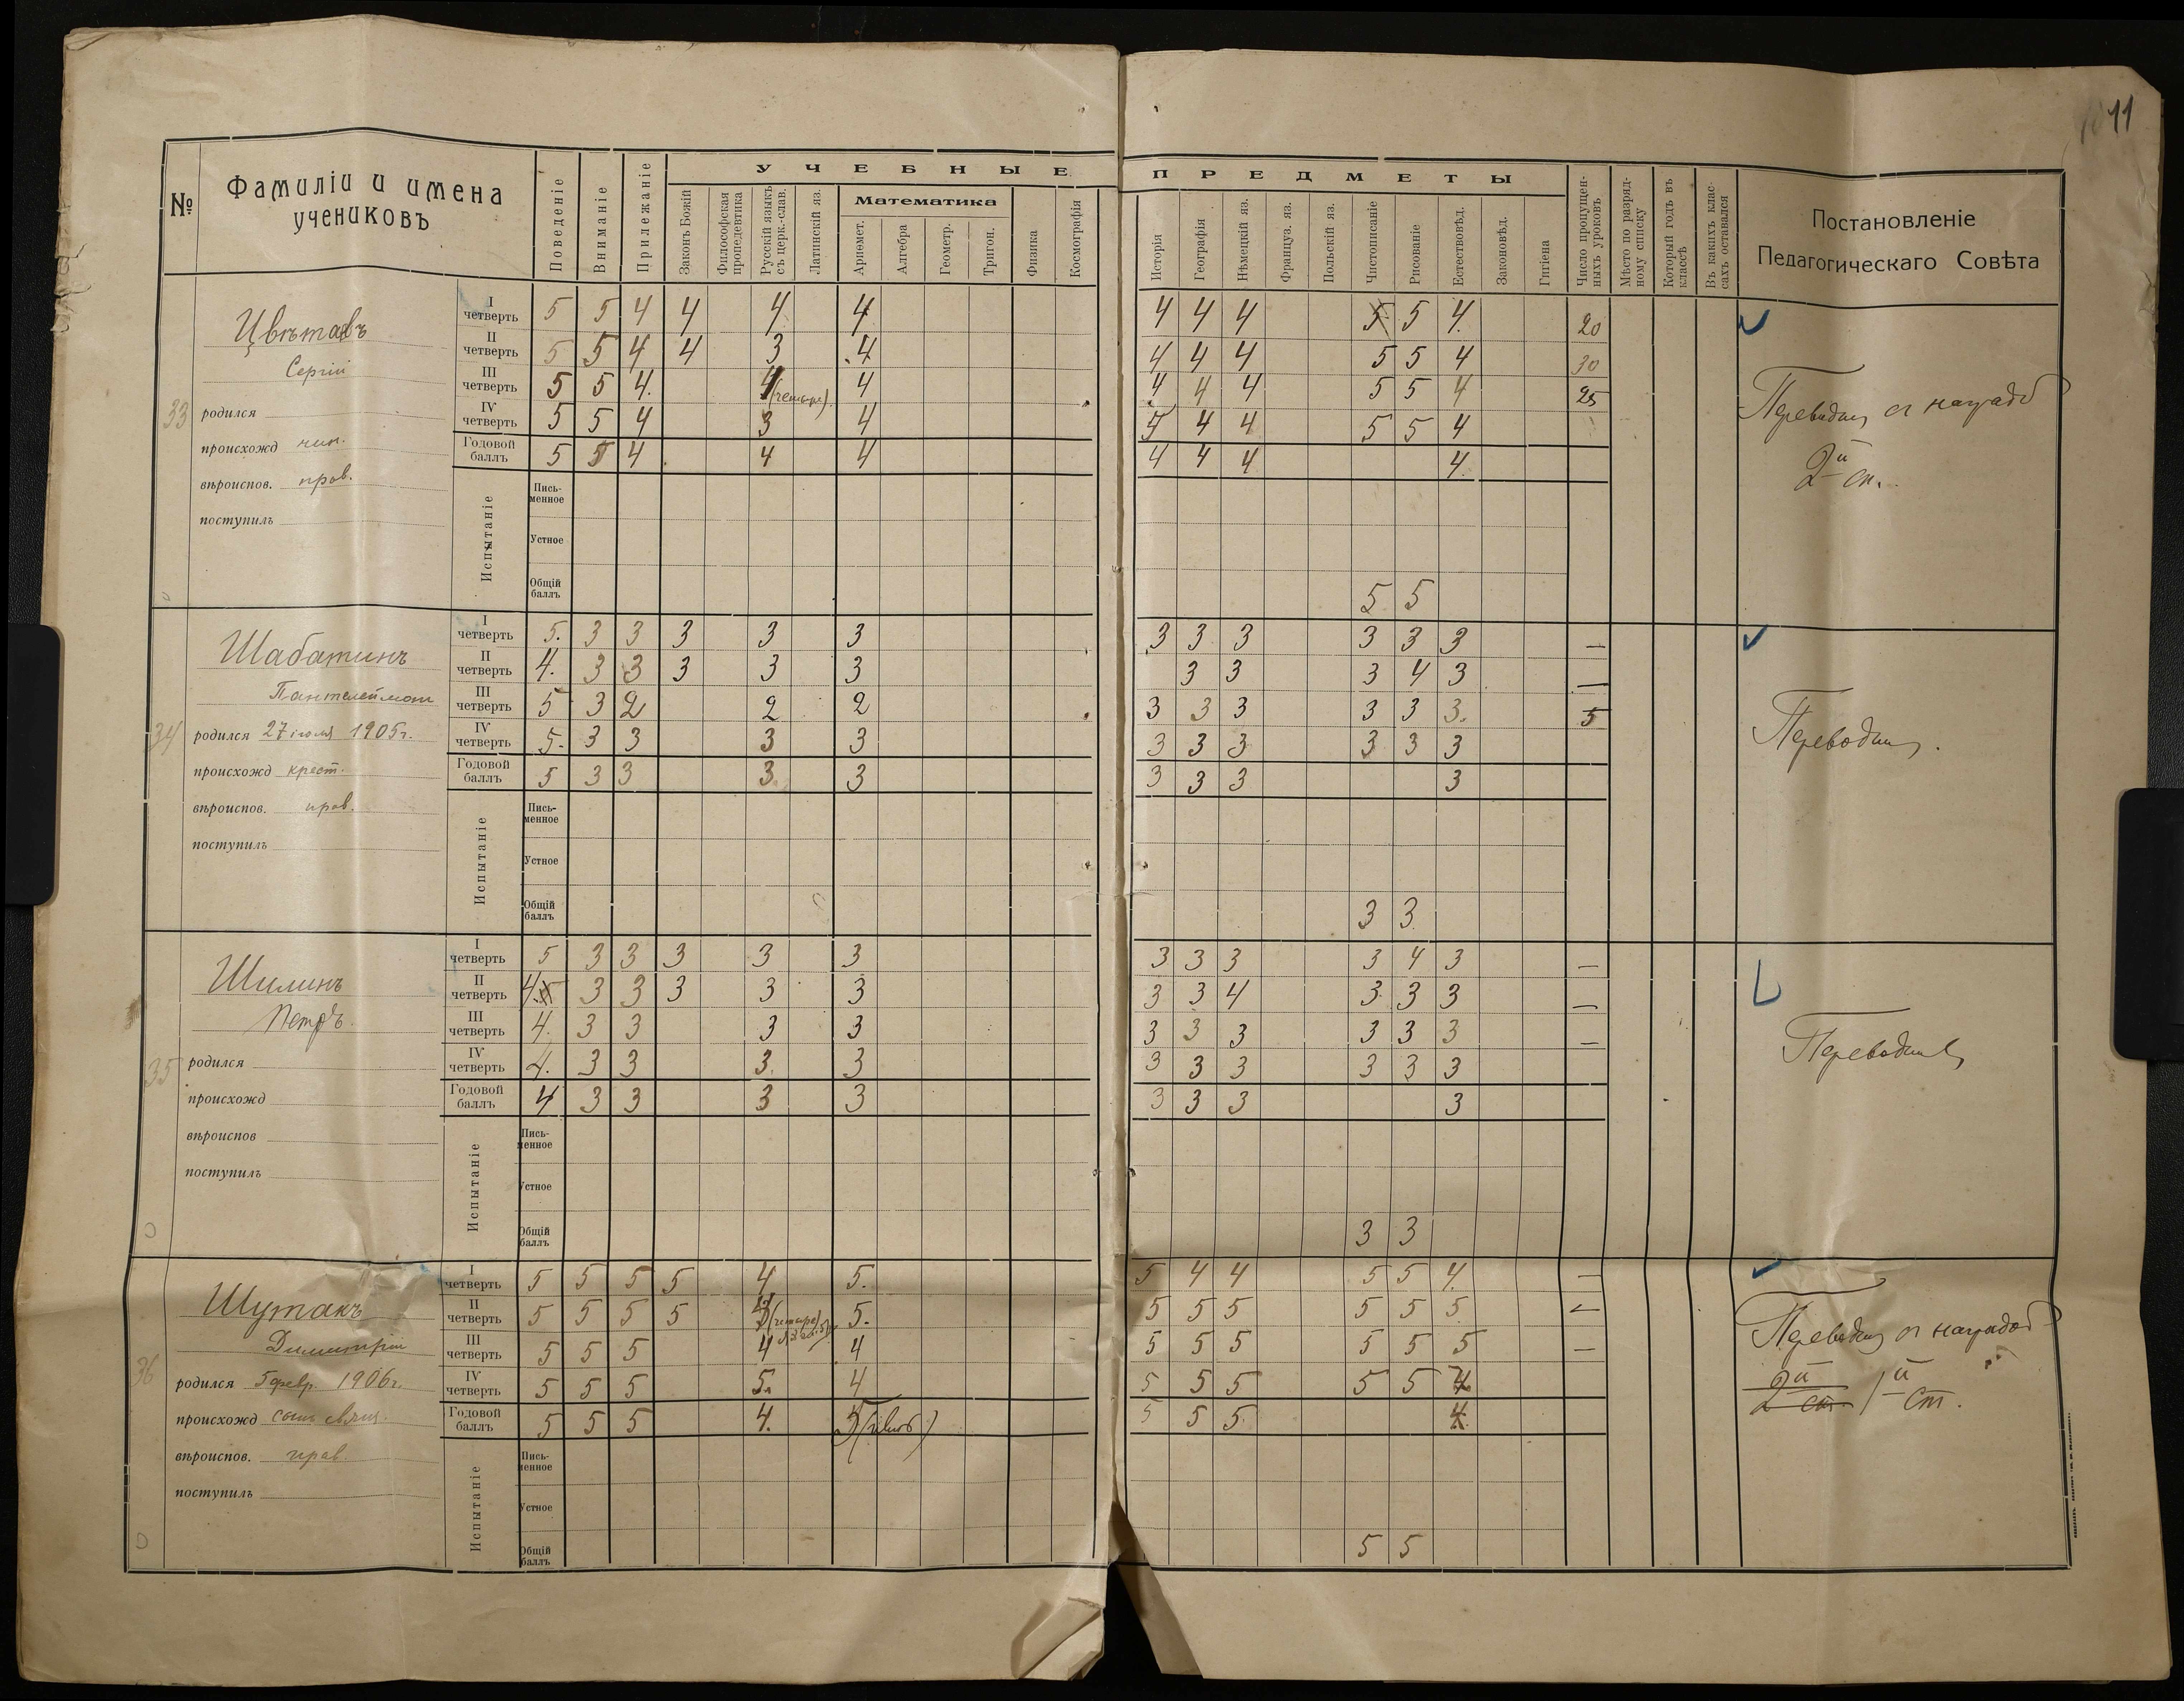 11
№
Фамиліи и имена
учениковъ
Поведеніе
Вниманіе
Прилежаніе
УЧЕБНЫЕ
Законъ Божій
Философская
пропедевтика
Русскій языкъ
съ церк.-слав.
Латинскій яз.
Математика
Ариѳмет.
Алгебра
Геометр.
Тригон.
Физика
Космографія
ПРЕДМЕТЫ
Исторія
Географія
Нѣмецкій яз.
Француз. яз.
Польскій яз.
Чистописаніе
Рисованіе
Естествовѣд.
Законовѣд.
Гигіена
Число пропущен-
ныхъ уроковъ
Мѣсто по разряд-
ному списку
Который годъ въ
классѣ
Въ какихъ клас-
сахъ оставался
Постановленіе
Педагогическаго Совѣта
33
Цвѣтаевъ
Сергій
родился
происхожд чин.
вѣроиспов. прав.
поступилъ
I четверть 5 5 4 4 4 4 4 4 4 5 5 4 20
II четверть 5 5 4 4 3 4 4 4 4 5 5 4 30
III четверть 5 5 4 4 (четыре) 4 4 4 4 5 5 4 25
IV четверть 5 5 4 3 4 4 4 4 5 5 4
Годовой баллъ 5 5 4 4 4 4 4 4 4
Испытаніе
Пись-
менное
Устное
Общій баллъ 5 5
Переводит с наградо
2й ст.
34
Шабатинъ
Пантелеймон
родился 27 іюля 1905 г.
происхожд крест.
вѣроиспов. прав.
поступилъ
I четверть 5 3 3 3 3 3 3 3 3 3 3 3 —
II четверть 4 3 3 3 3 3 3 3 3 4 3 —
III четверть 5 3 2 2 2 3 3 3 3 3 3 5
IV четверть 5 3 3 3 3 3 3 3 3 3 3
Годовой баллъ 5 3 3 3 3 3 3 3 3
Испытаніе
Пись-
менное
Устное
Общій баллъ 3 3
Переводит.
35
Шилинъ
Петръ
родился
происхожд
вѣроиспов
поступилъ
I четверть 5 3 3 3 3 3 3 3 3 3 4 3 —
II четверть 4 5 3 3 3 3 3 3 3 4 3 3 3 —
III четверть 4 3 3 3 3 3 3 3 3 3 3 —
IV четверть 4 3 3 3 3 3 3 3 3 3 3
Годовой баллъ 4 3 3 3 3 3 3 3 3
Испытаніе
Пись-
менное
Устное
Общій баллъ 3 3
Переводит
36
Шутакъ
Димитрій
родился 5 февр. 1906 г.
происхожд сынъ свящ.
вѣроиспов. прав.
поступилъ
I четверть 5 5 5 5 4 5 5 4 4 5 5 4 —
II четверть 5 5 5 5 4 (четыре) 5 5 5 5 5 5 5 —
III четверть 5 5 5 4 4 5 5 5 5 5 5 —
IV четверть 5 5 5 5 4 5 5 5 5 5 4
Годовой баллъ 5 5 5 4 5 5 5 5 4
Испытаніе
Пись-
менное
Устное
Общій баллъ 5 5
Переводит с наградой
2й ст 1й ст.